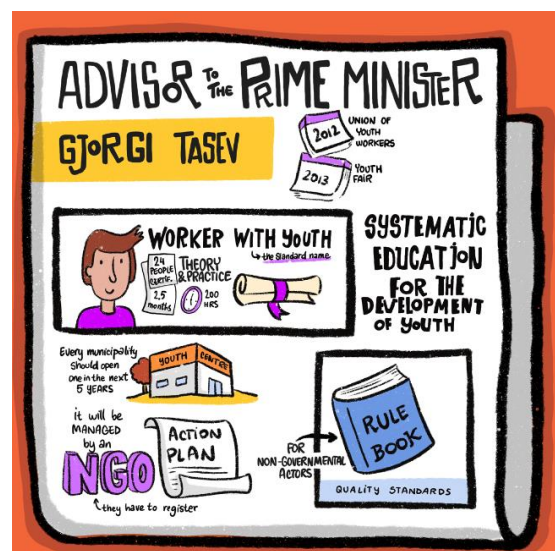 ADVISOR TO THE PRIME MINISTER
GJORGI TASEV
2012
UNION OF
YOUTH
WORKERS
2013
YOUTH
FAIR
WORKER WITH YOUTH
the standard name
24
PEOPLE
CERTIF.
2,5
months
THEORY
& PRACTICE
200
HRS
SYSTEMATIC
EDUCATION
FOR THE
DEVELOPMENT
OF YOUTH
Every municipality
should open
one in the next
5 YEARS
YOUTH CENTRE
it will be
MANAGED
by an
NGO
they have to register
ACTION
PLAN
FOR
NON-GOVERNMENTAL
ACTORS
RULE
BOOK
QUALITY STANDARDS